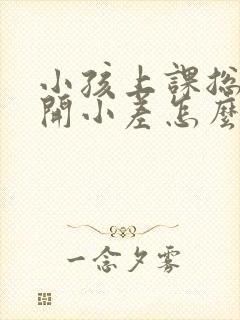 小孩上課總
開小差怎麼
一念夕雾